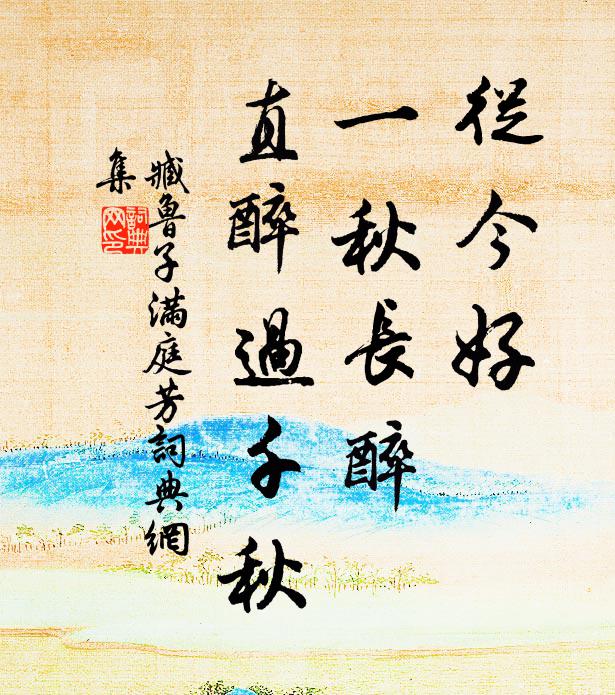 從今好
一秋長醉
直醉過千秋
臧魯子滿庭芳詞典網
集
詞典
网印